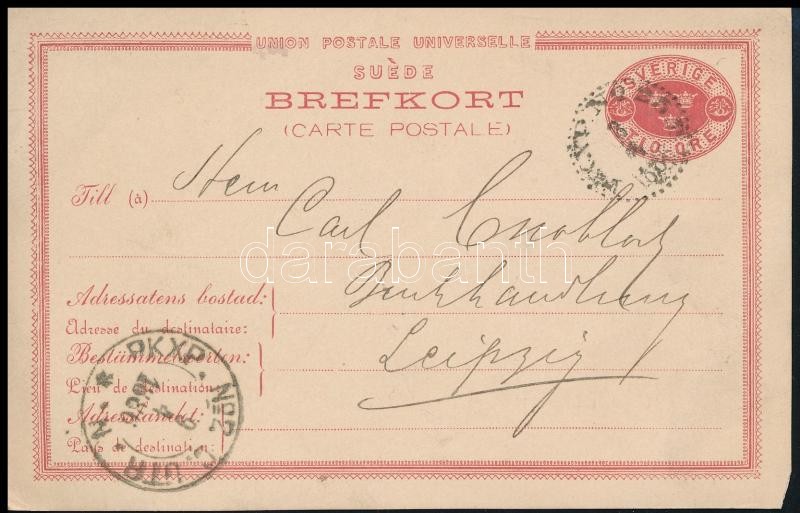 UNION POSTALE UNIVERSELLE
SUÈDE
BREFKORT
(CARTE POSTALE)
SVERIGE
TIO ÖRE
PKXP. Nr
Till (à) Herrn
Carl Cnobloch
darabanth
Adressatens bostad:
Adresse du destinataire:
Buchhandlung
Bestämmelseorten:
Lieu de destination:
Leipzig
Adresslandet:
Pays de destination:
PKXP. Nr 2
UTR.